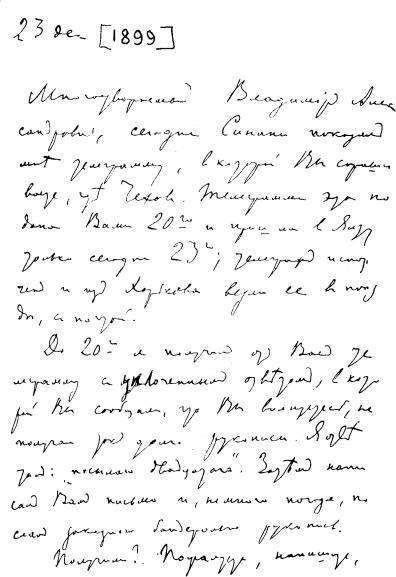 23 дек [1899]
Многоуважаемый Владимір Алек
сандровичъ, сегодня Синани показал
мнѣ телеграмму, въ которой Вы спраши
ваете, гдѣ Чехов. Телеграмма эта по
дана Вами 20го и пришла въ Ялту
только сегодня 23го; телеграф испор
чен и из Харькова везли ее въ поез
де, с почтой.
До 20го я получил от Вас те
леграмму с уплоченным отвѣтом, в кото
рой Вы сообщали, что Вы волнуетесь, не
получая так долго рукописи. Я отвѣ
тил: "посылаю двадцатого". Затѣм напи
сал Вам письмо и, немного погодя, по
слал заказной бандеролью рукопись.
Получили? Пожалуйста, напишите,